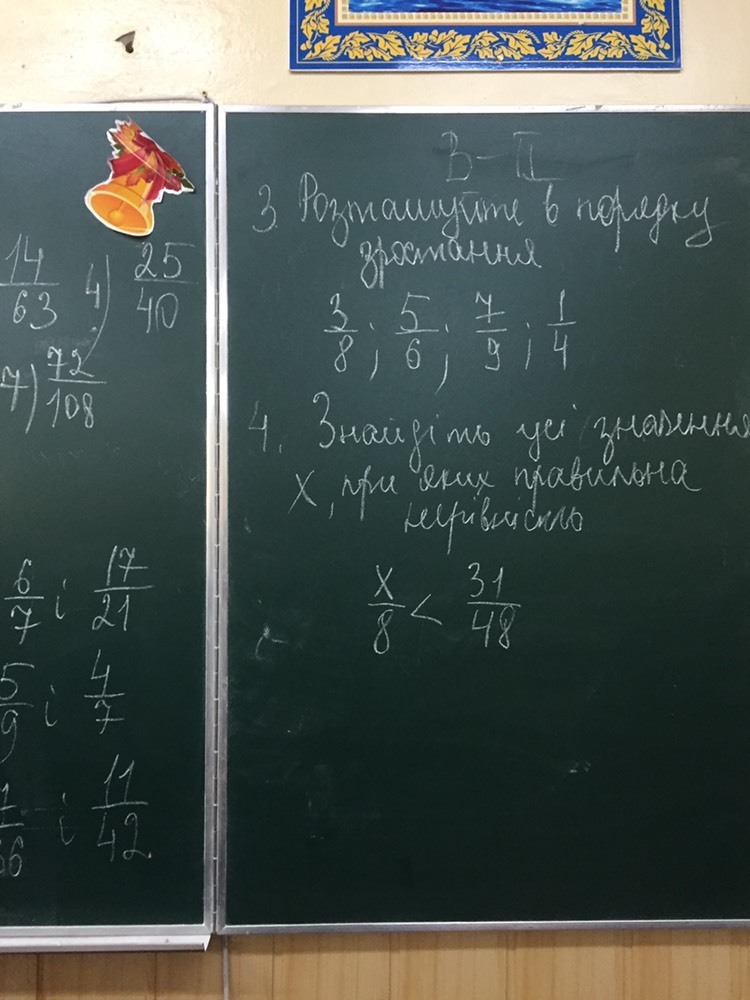 14/63 4) 25/40
7) 72/108
6/7 і 17/21
5/9 і 4/7
і 11/42
В-ІІ
3. Розташуйте в порядку
зростання
3/8; 5/6; 7/9; 1/4
4. Знайдіть усі значення
х, при яких правильна
нерівність
х/8 < 31/48